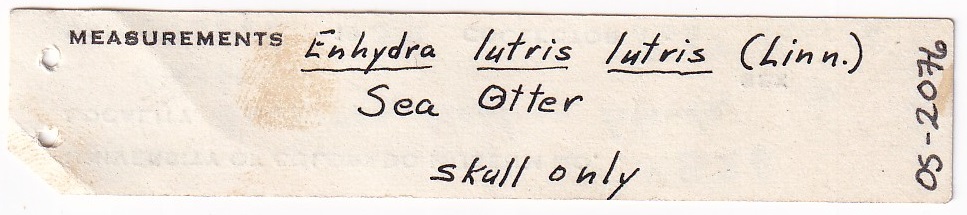 MEASUREMENTS Enhydra lutris lutris (Linn.)
Sea Otter
skull only
OS-2076